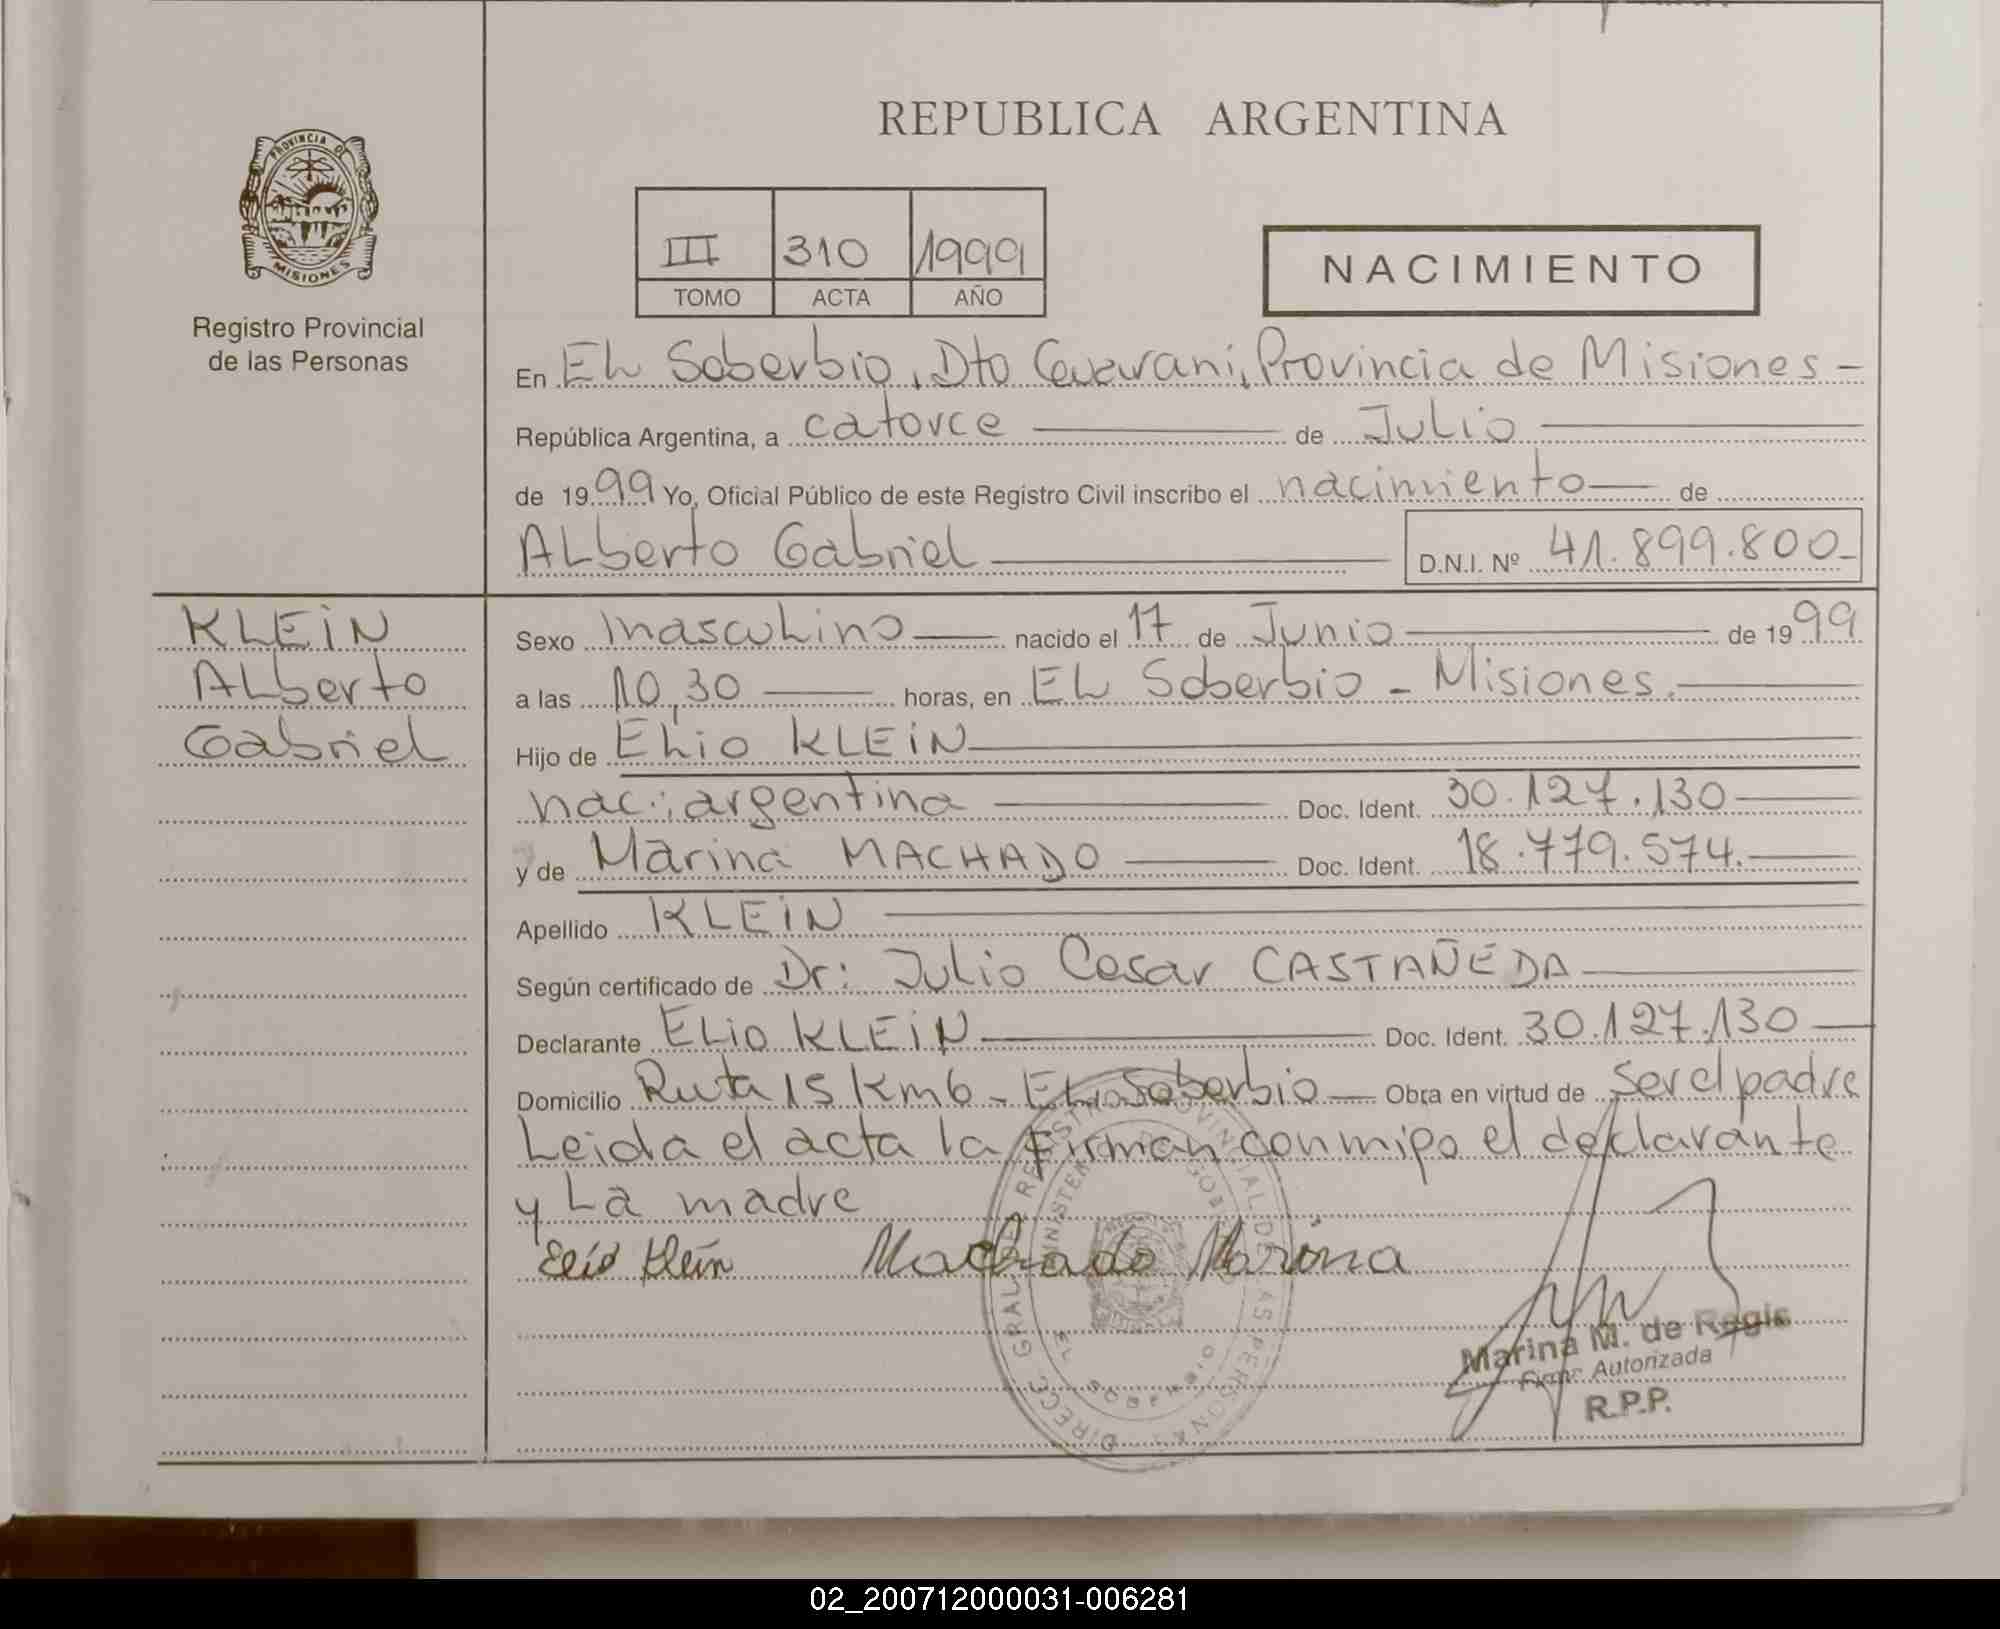 REPUBLICA ARGENTINA
PROVINCIA DE
MISIONES
Registro Provincial
de las Personas
III 310 1999
TOMO ACTA AÑO
NACIMIENTO
En EL Soberbio, Dto Guarani, Provincia de Misiones -
República Argentina, a catorce de Julio
de 1999 Yo, Oficial Público de este Registro Civil inscribo el nacimiento de
ALberto Gabriel D.N.I. Nº 41.899.800-
KLEiN
ALberto
Gabriel
Sexo masculino nacido el 17 de Junio de 1999
a las 10,30 horas, en EL Soberbio - Misiones.
Hijo de ELio KLEiN
nac: argentina Doc. Ident. 30.127.130
y de Marina MACHADO Doc. Ident. 18.779.574.
Apellido KLEiN
Según certificado de Dr: Julio Cesar CASTAÑEDA
Declarante ELio KLEiN Doc. Ident. 30.127.130
Domicilio Ruta 15 Km6 - EL Soberbio Obra en virtud de ser el padre
Leida el acta la firman conmigo el declarante
y La madre
Elio Klein Machado Marina
DIREC. GRAL. DEL REGISTRO PROVINCIAL DE LAS PERSONAS
EL SOBERBIO
Marina M. de Regis
Firma Autorizada
R.P.P.
02_200712000031-006281